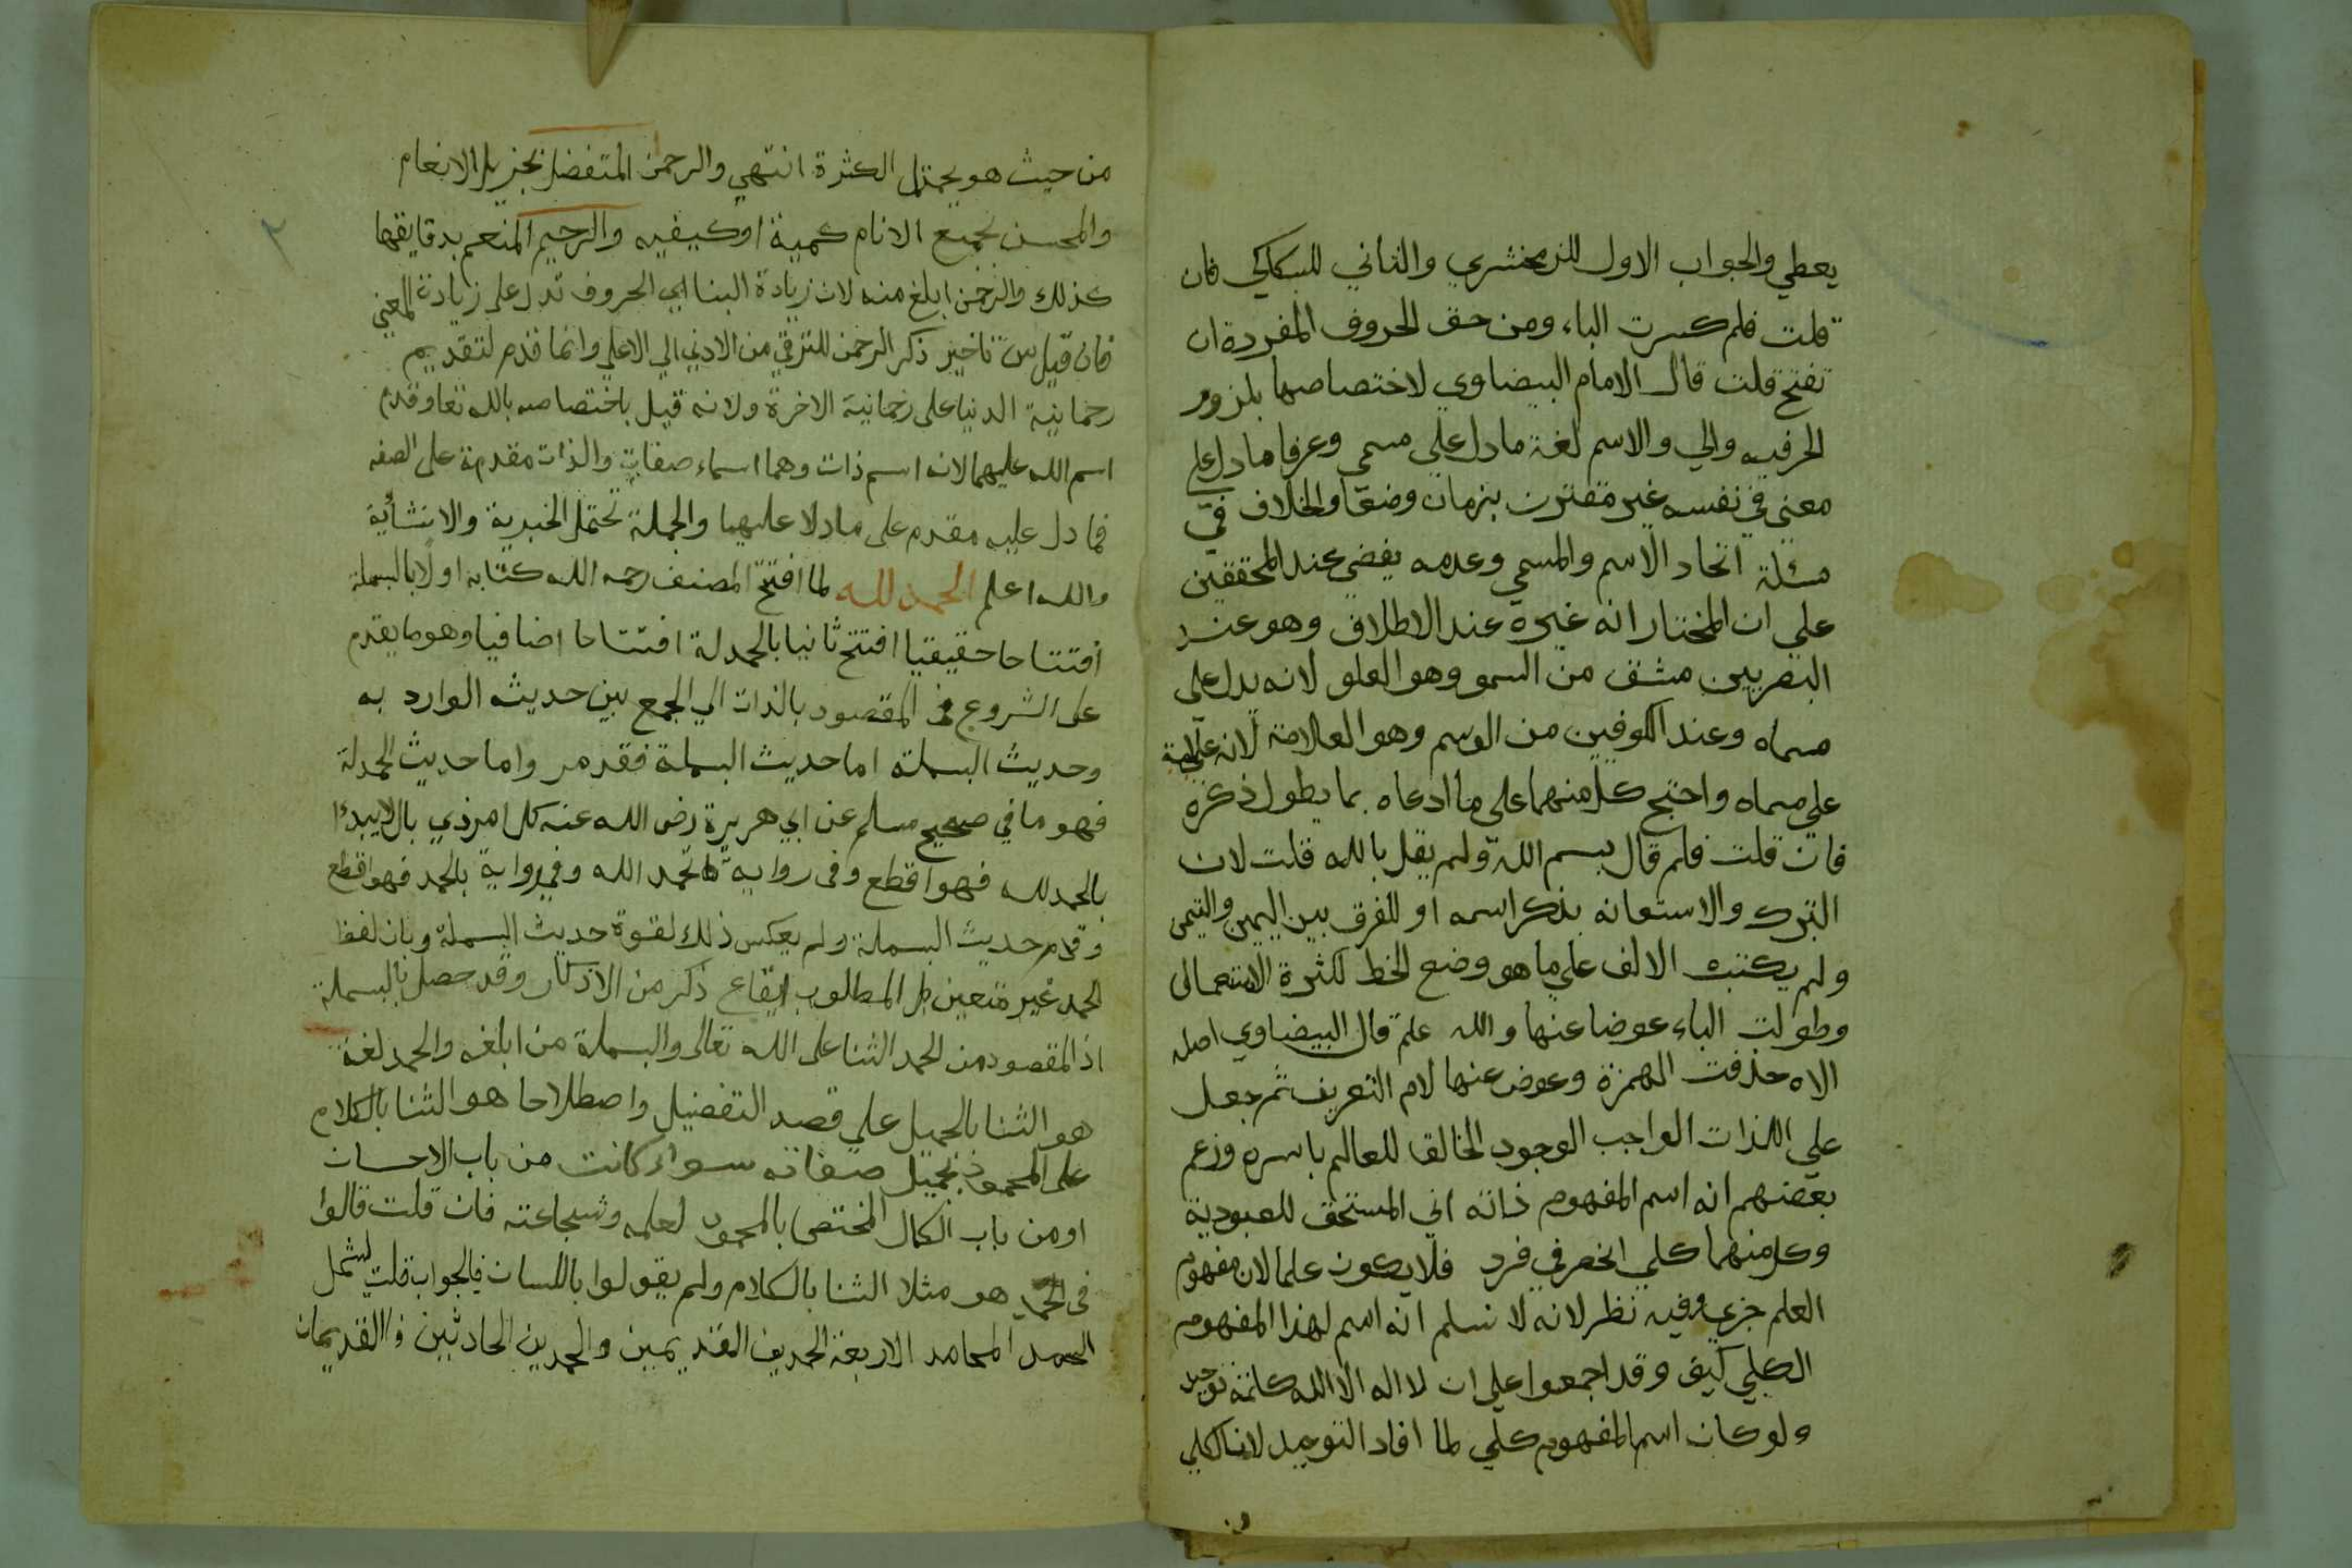 يعطي والجواب الاول للزمخشري والثاني للسكاكي فان
قلت فلم كسرت الباء ومن حق الحروف المفردة ان
تفتح قلت قال الامام البيضاوي لاختصاصها بلزوم
الحرفيه والي والاسم لغة مادل على مسمي وعرفا مادل على
معني في نفسه غير مقترن بزمان وضعا والخلاف في
مسئلة اتحاد الاسم والمسمي وعدمه يفضي عند المحققين
علي ان المختار انه غيره عند الاطلاق وهو عند
البصريين مشتق من السمو وهو العلو لانه يدل على
مسماه وعند الكوفين من الوسم وهو العلامة لانه علامة
علي مسماه واحتج كل منهما على ما ادعاه بما يطول ذكره
فان قلت فلم قال بسم الله ولم يقل بالله قلت لان
التبرك والاستعانه بذكر اسمه او للفرق بين اليمين والتيمن
ولم يكتب الالف علي ما هو وضع الخط لكثرة الاستعمال
وطولت الباء عوضا عنها والله علم قال البيضاوي اصله
الاه حذفت الهمزة وعوض عنها لام التعريف ثم جعل
علي الذات الواجب الوجود الخالق للعالم باسره وزعم
بعضهم انه اسم المفهوم ذاته اني المستحق للعبودية
وكل منهما كلي انحصر في فرد فلا يكون علما لان مفهوم
العلم جزيي وفيه نظر لانه لا نسلم انه اسم لهذا المفهوم
الكلي كيف وقد اجمعوا علي ان لا اله الا الله كلمة توحيد
ولو كان اسم المفهوم كلي لما افاد التوحيد لان الكلي
من
من حيث هو يحتمل الكثرة انتهي والرحمن المتفضل بجزيل الانعام
والمحسن لجميع الانام كمية اوكيفيه والرحيم المنعم بدقايقها
كذلك والرحمن ابلغ منه لان زيادة البنا اي الحروف تدل على زيادة المعني
فان قيل تاخير ذكر الرحمن للترقي من الادني الي الاعلي وانما قدم لتقديم
رحمانية الدنيا على رحمانية الاخرة ولانه قيل باختصاصه بالله تعا وقدم
اسم الله عليهما لانه اسم ذات وهما اسماء صفات والذات مقدمة على الصفه
فما دل عليه مقدم على مادلا عليهما والجملة تحتمل الخبرية والانشائية
والله اعلم الحمد لله لما افتتح المصنف رحمه الله كتابه اولا بالبسملة
افتتاحا حقيقيا افتتح ثانيا بالحمدلة افتتاحا اضافيا وهو ما يقدم
على الشروع في المقصود بالذات الي الجمع بين حديثه الوارد به
وحديث البسملة اما حديث البسملة فقد مر واما حديث الحمدلة
فهو ما في صحيح مسلم عن ابي هريرة رض الله عنه كل امر ذي بال لا يبدا
بالحمد لله فهو اقطع وفي رواية بحمد الله وفي رواية بالحمد فهو اقطع
وقدم حديث البسملة ولم يعكس ذلك لقوة حديث البسملة وبان لفظ
الحمد غير متعين بل المطلوب ايقاع ذكر من الاذكار وقد حصل بالبسملة
اذ المقصود من الحمد الثنا على الله تعالى والبسملة من ابلغه والحمد لغة
هو الثنا بالجميل علي قصد التفضيل واصطلاحا هو الثنا بالكلام
على المحمود بجميل صفاته سواء كانت من باب الاحسان
او من باب الكمال المختص بالمحمود لعلمه وشجاعته فان قلت قالوا
في الحمد هو مثلا الثنا بالكلام ولم يقولوا باللسان فالجواب قلت ليشمل
الحمد المحامد الاربعة الحمدين القديمين والحمدين الحادثين فالقديمان
٢